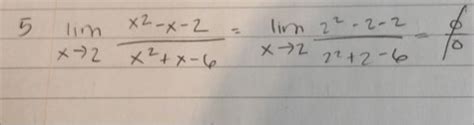 5 lim x→2 x²-x-2 / x²+x-6 = lim x→2 2²-2-2 / 2²+2-6 = 0/0